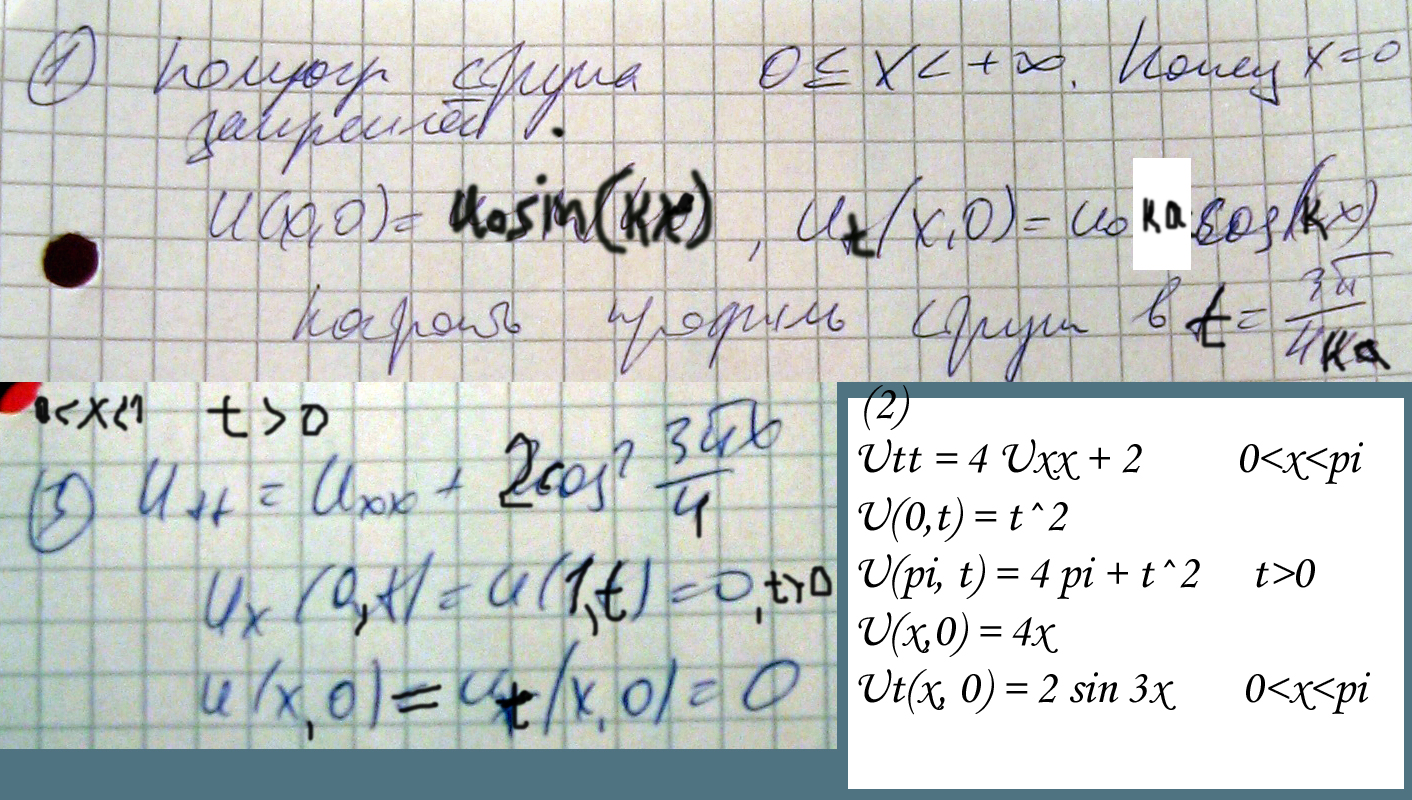 ① Полуогр струна 0 ≤ x < +∞. Конец x=0
закреплен.
U(x,0)= u₀sin(kx), Uₜ(x,0)= u₀ ka cos(kx)
профиль струны в t= 3π/4ka
0<x<1 t>0
Uₜₜ = Uₓₓ + 2cos 3πx/4
Uₓ(0,t) = u(1,t) = 0, t>0
u(x,0) = uₜ(x,0) = 0
(2)
Utt = 4 Uxx + 2 0<x<pi
U(0,t) = t^2
U(pi, t) = 4 pi + t^2 t>0
U(x,0) = 4x
Ut(x, 0) = 2 sin 3x 0<x<pi